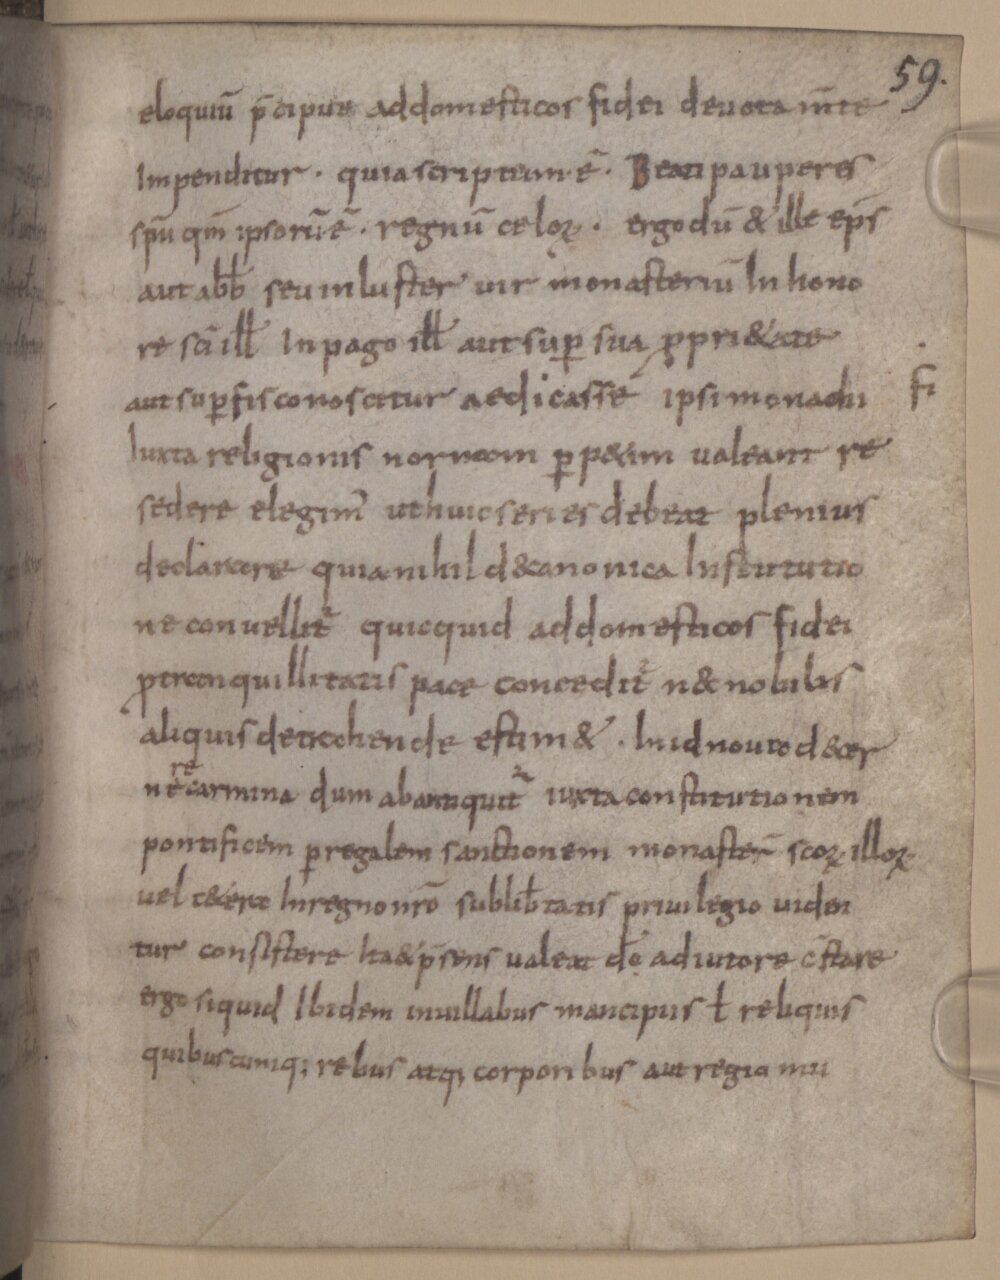 59.
eloquiū p̄cipue addomesticos fidei deuota m̄te
Impenditur · quiascriptum ē · Beati pauperes
sp̄u qm̄ ipsorū ē · regnū celoꝝ · ergo dū & ille ep̄s
aut abb̄ seu inluster uir monasteriū In hono
re sc̄i ill̄ In pago ill̄ aut suꝑ sua ꝓpri&ate
aut suꝑ fisco noscitur aedicasse ipsi monachi fi
Iuxta religionis normam ꝑp&im ualeant re
sedere elegim̄ ut huic series debeat plenius
declarare quia nihil d& canonica Institutio
ne conuellit̄ quicquid ad domesticos fidei
ꝓ tranquillitatis pace concedit̄ n& nobilis
aliquis detrahende estim& · In id nouo d&cer
nere carmina dum abantiquit̄ iuxta constitutionem
pontificem ꝑ regalem sanctionem monaster̄ sc̄oꝝ illoꝝ
uel c&era In regno nr̄o sub lib̄tatis priuilegio uiden
tur consistere Ita & p̄sens ualeat dō adiutore c̄stare
ergo siquid Ibidem inuillabus mancipiis ł reliquis
quibuscumq; rebus atq; corporibus aut regio mu